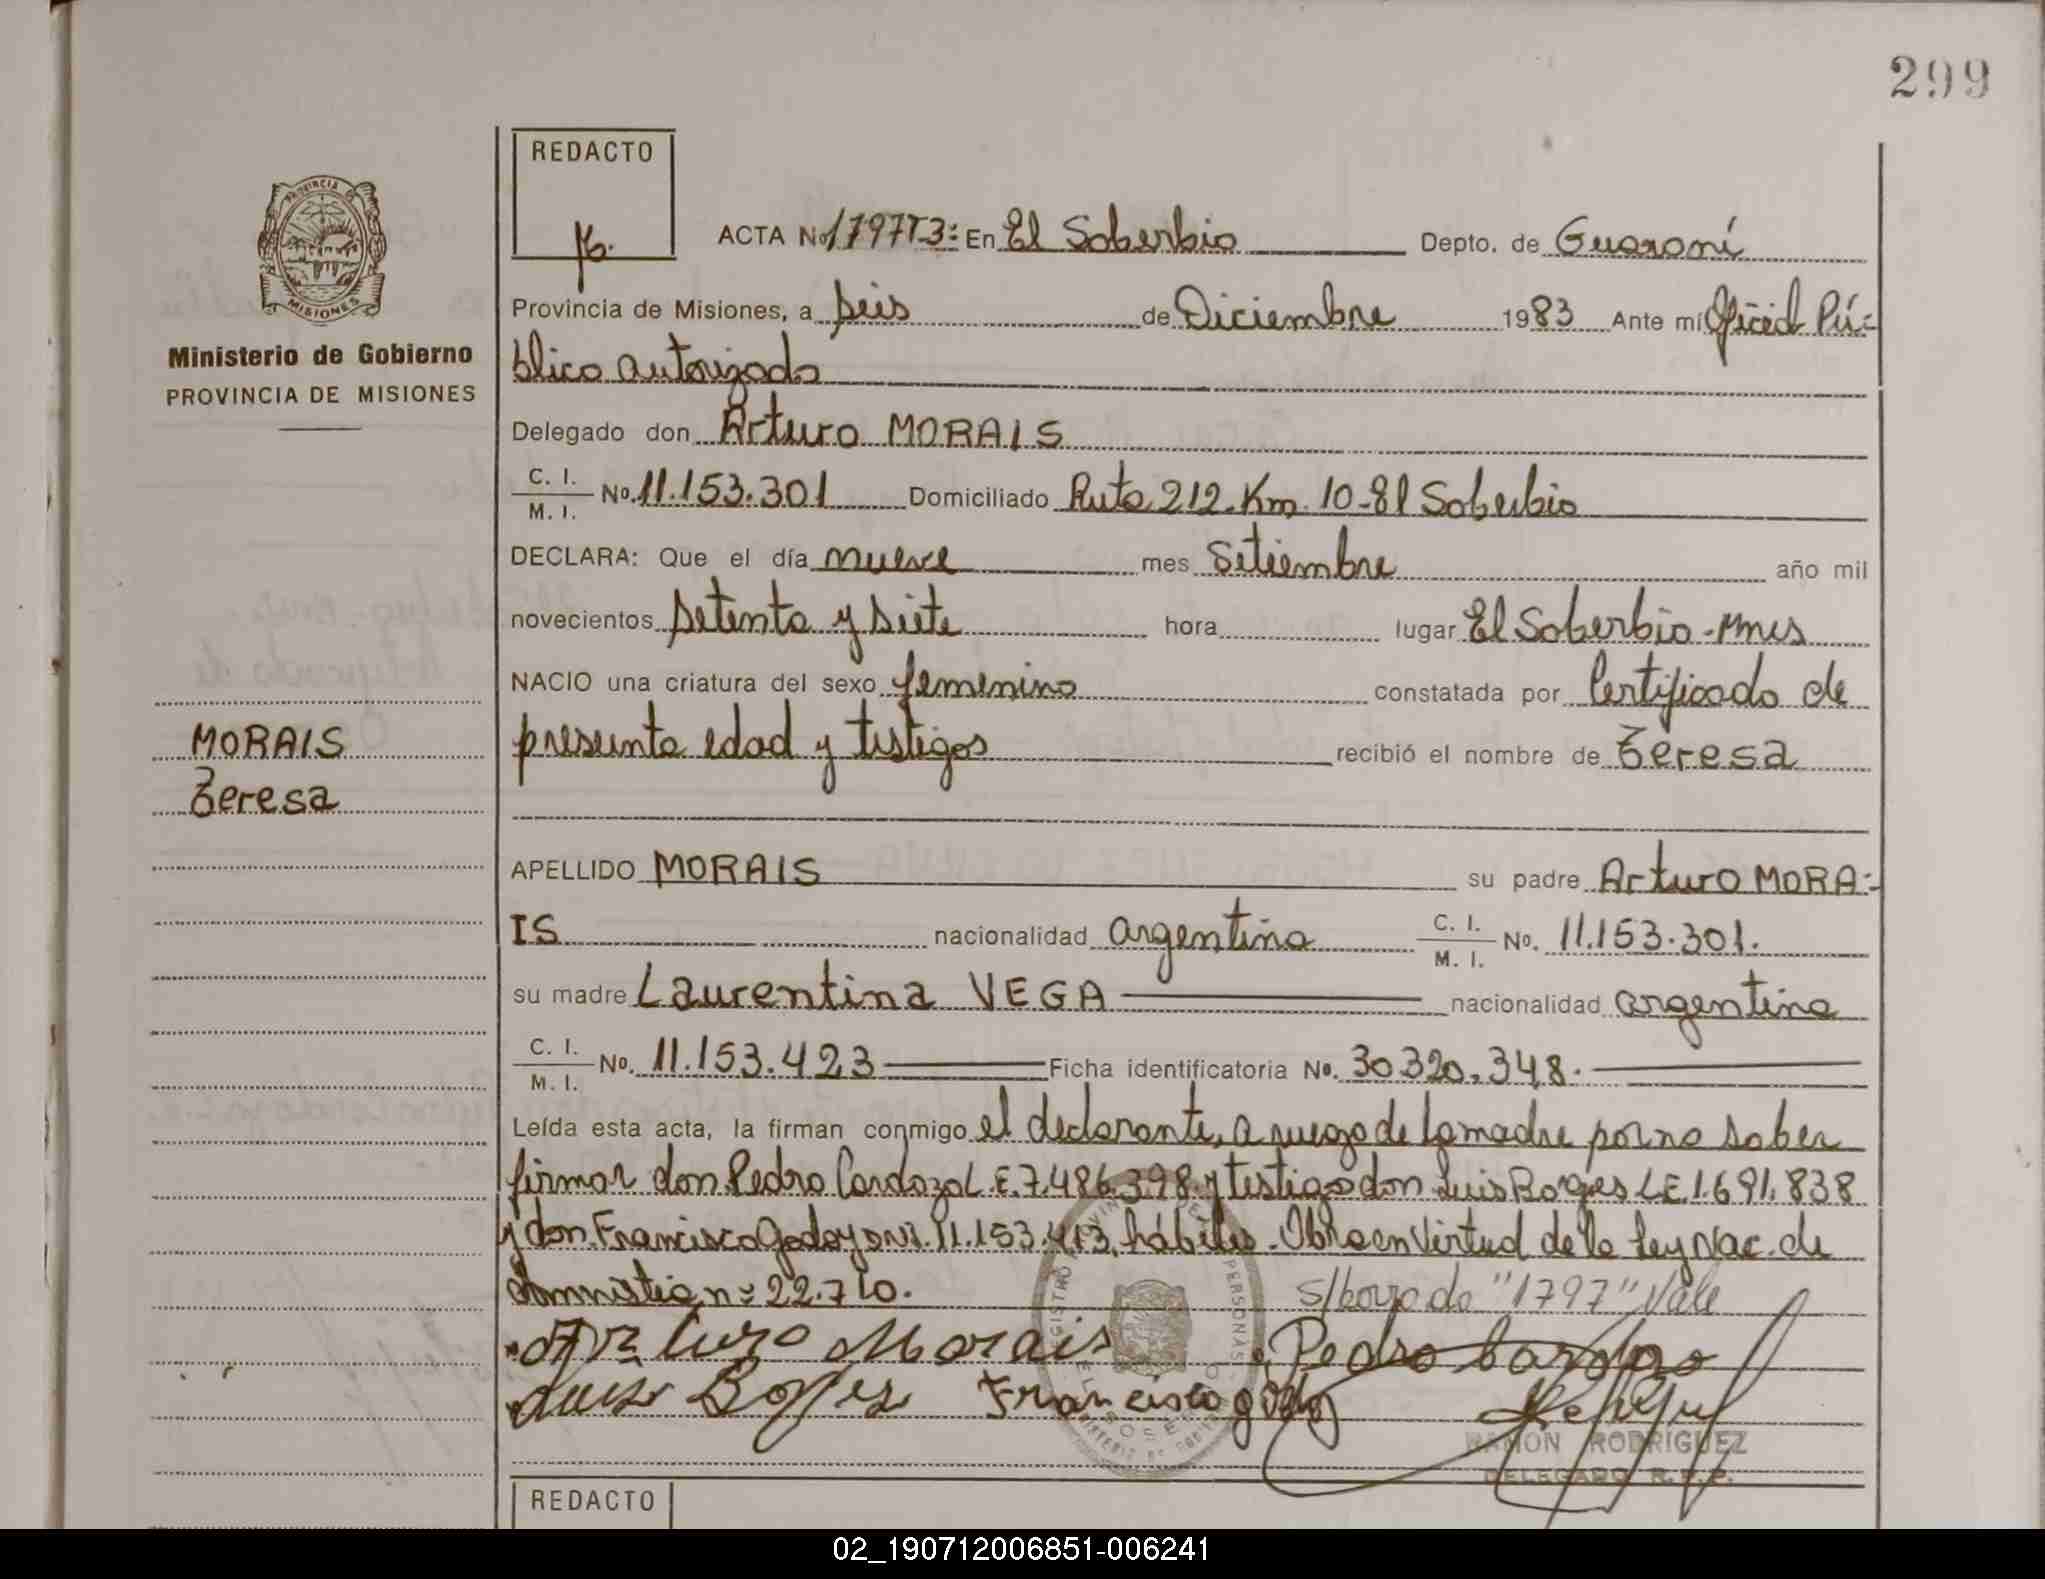 299
REDACTO
ACTA No 1797T3: En El Soberbio Depto. de Guaraní
Provincia de Misiones, a seis de Diciembre 1983 Ante mí Oficial Pú-
blico autorizado
Ministerio de Gobierno
PROVINCIA DE MISIONES
Delegado don Arturo MORAIS
C. I. / M. I. No. 11.153.301 Domiciliado Ruta 212. Km. 10-El Soberbio
DECLARA: Que el día nueve mes Setiembre año mil
novecientos setenta y siete hora lugar El Soberbio-Mnes
NACIO una criatura del sexo femenino constatada por Certificado de
presunta edad y testigos recibió el nombre de Teresa
MORAIS
Teresa
APELLIDO MORAIS su padre Arturo MORA-
IS nacionalidad argentina C. I. / M. I. No. 11.153.301.
su madre Laurentina VEGA nacionalidad argentina
C. I. / M. I. No. 11.153.423 Ficha identificatoria No. 30.320.348.
Leída esta acta, la firman conmigo el declarante, a ruego de la madre por no saber
firmar don Pedro Cardozo L.E. 7.486.398 y testigos don Luis Borges L.E. 1.691.838
y don Francisco Godoy DNI. 11.153.413, hábiles. Obra en Virtud de la Ley Nac. de
Amnistia n= 22.710.
s/borrado "1797" Vale
Arturo Morais Pedro Cardozo
Luis Borges Francisco godoy
RAMON RODRIGUEZ
DELEGADO R.P.P.
REDACTO
02_190712006851-006241